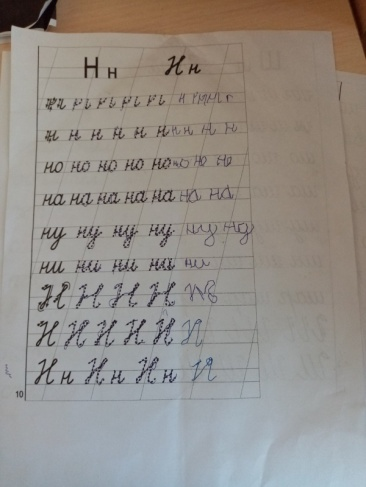 Н н Н н
н н н н н н н н н
но но но но но но но но
на на на на на на на
ну ну ну ну ну ну
ни ни ни ни ни
Н Н Н Н
Н Н Н Н Н И
Н н Н н Н н И
10